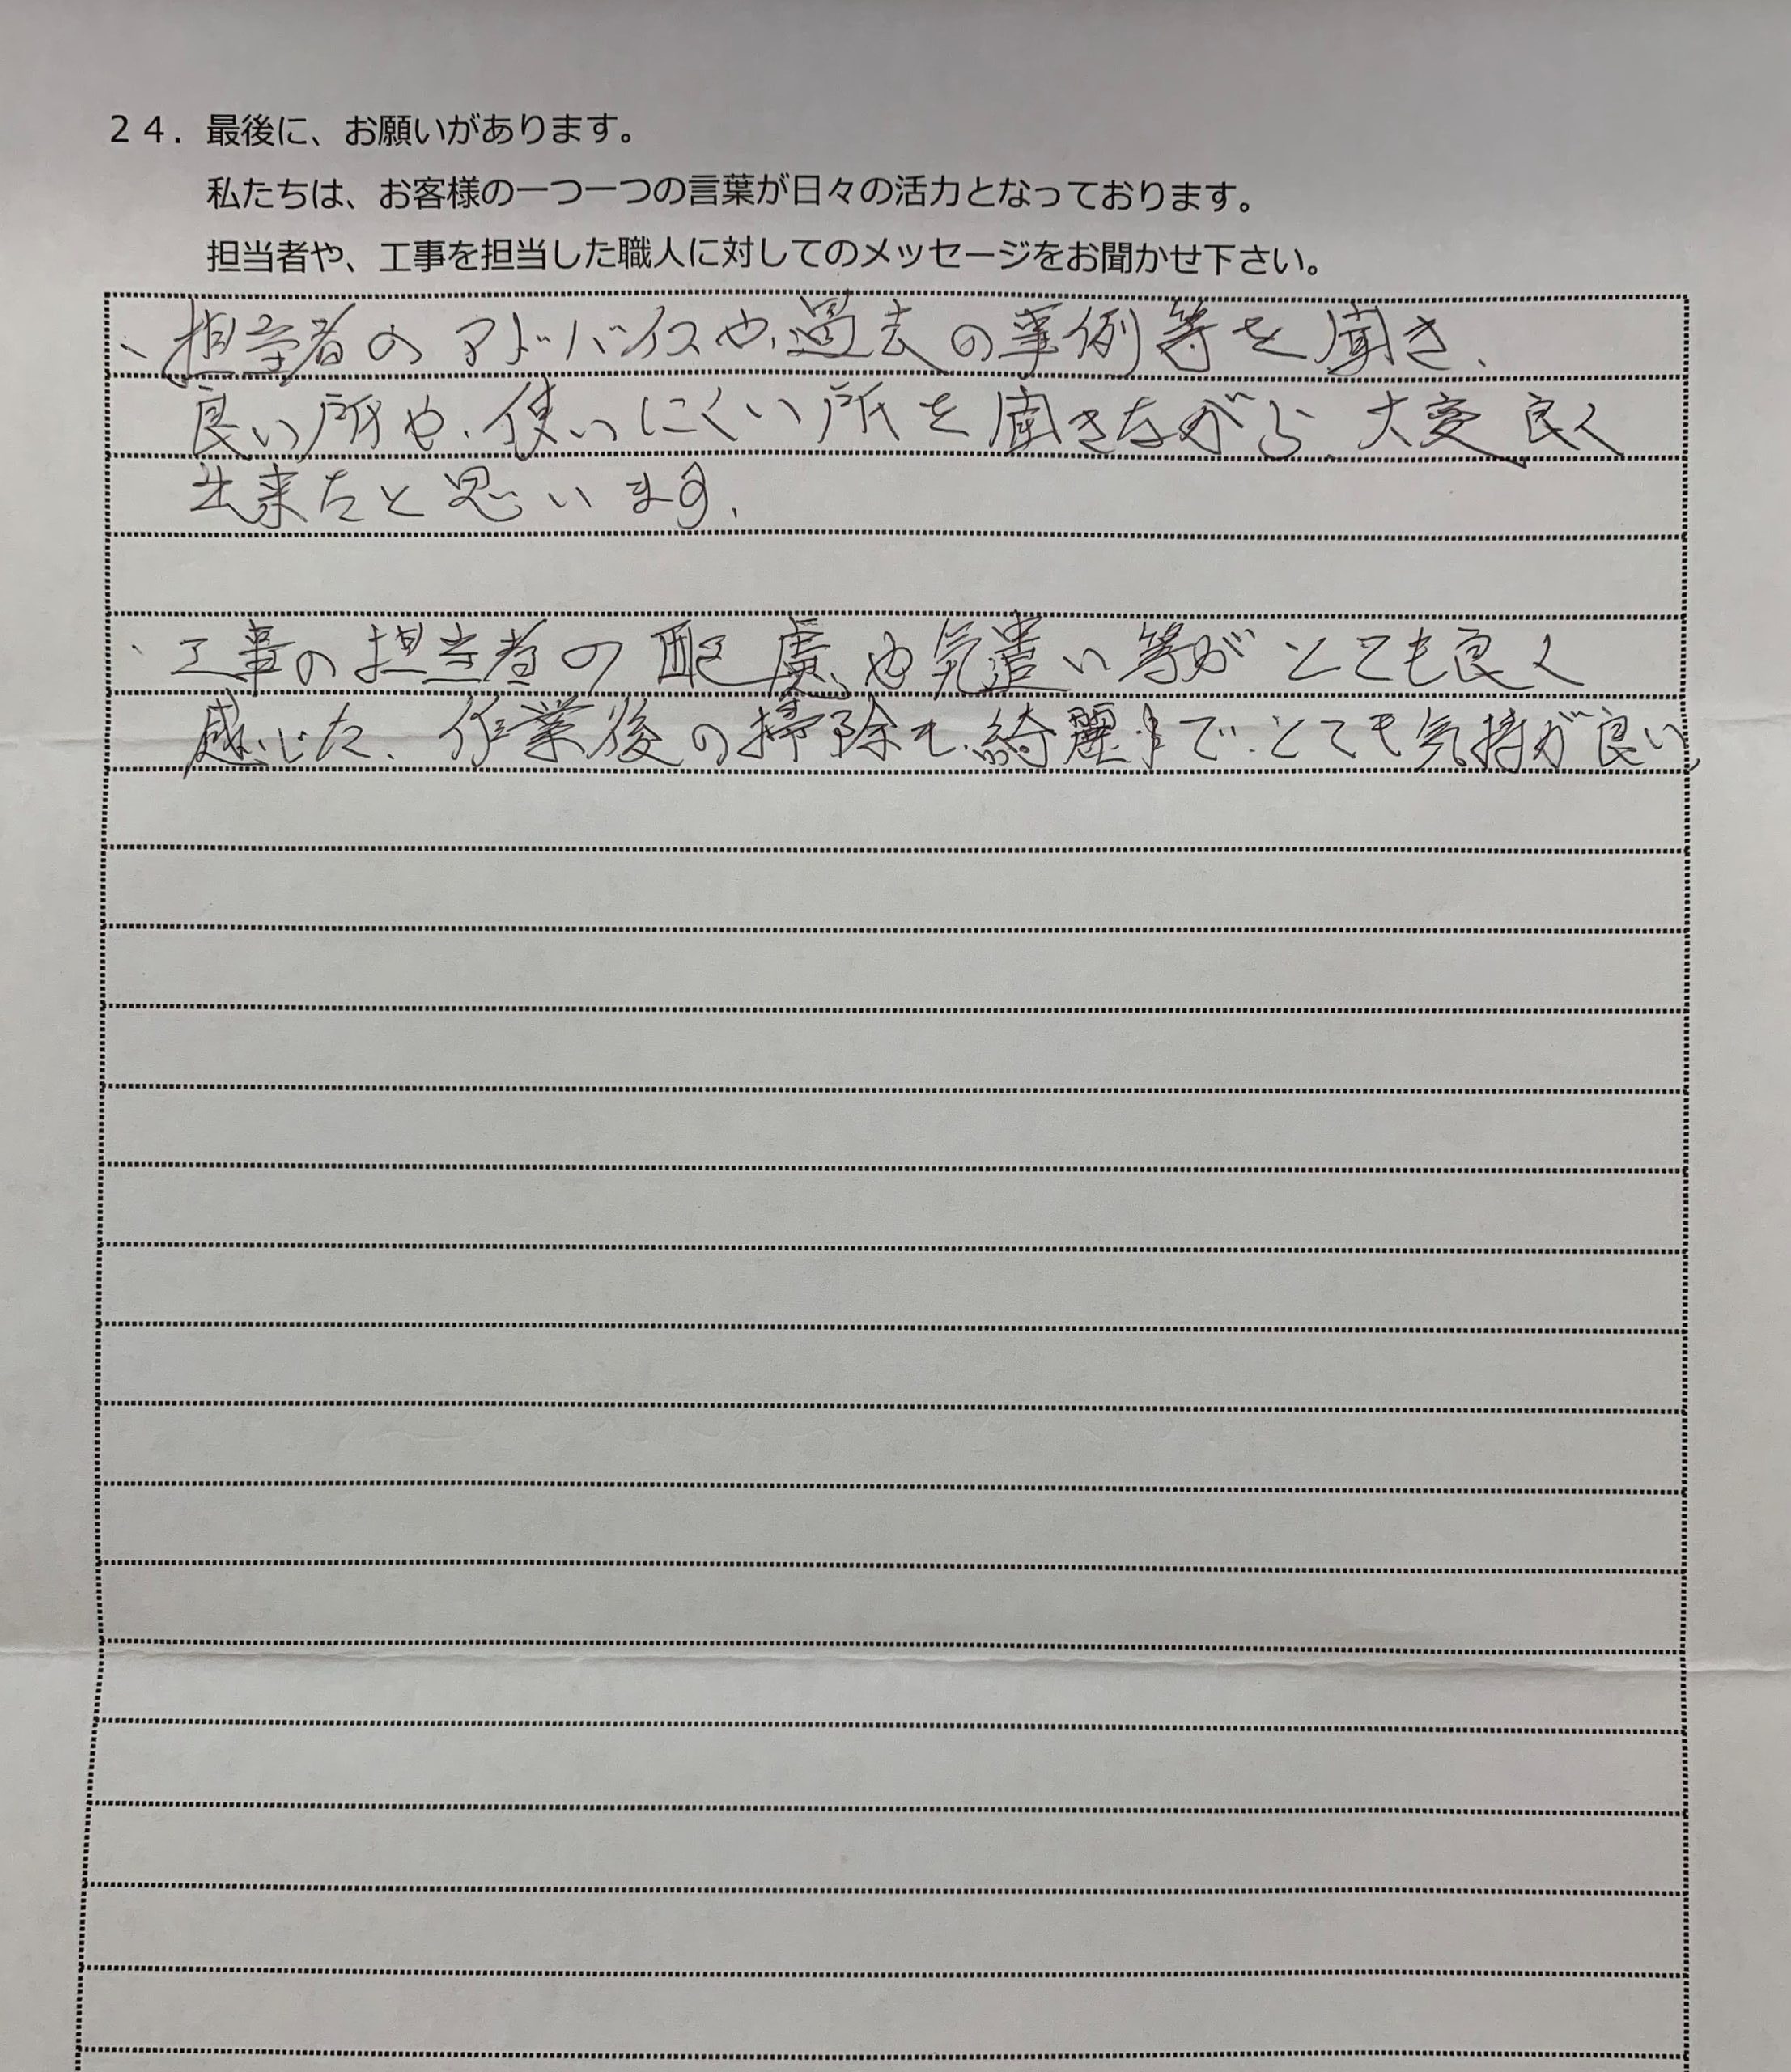 ２４．最後に、お願いがあります。
私たちは、お客様の一つ一つの言葉が日々の活力となっております。
担当者や、工事を担当した職人に対してのメッセージをお聞かせ下さい。
、担当者のアドバイスや、過去の事例等を聞き、
良い所や、使いにくい所を聞きながら、大変良く
出来たと思います。
、工事の担当者の配慮や気遣い等がとても良く
感じた、作業後の掃除も、綺麗まで、とても気持が良い、